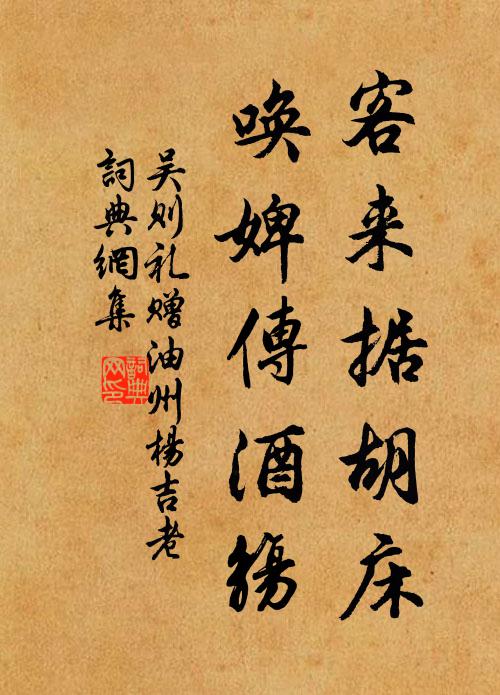 客来据胡床
唤婢傳酒觴
吴则礼赠油州楊吉老
詞典網集
詞典网印